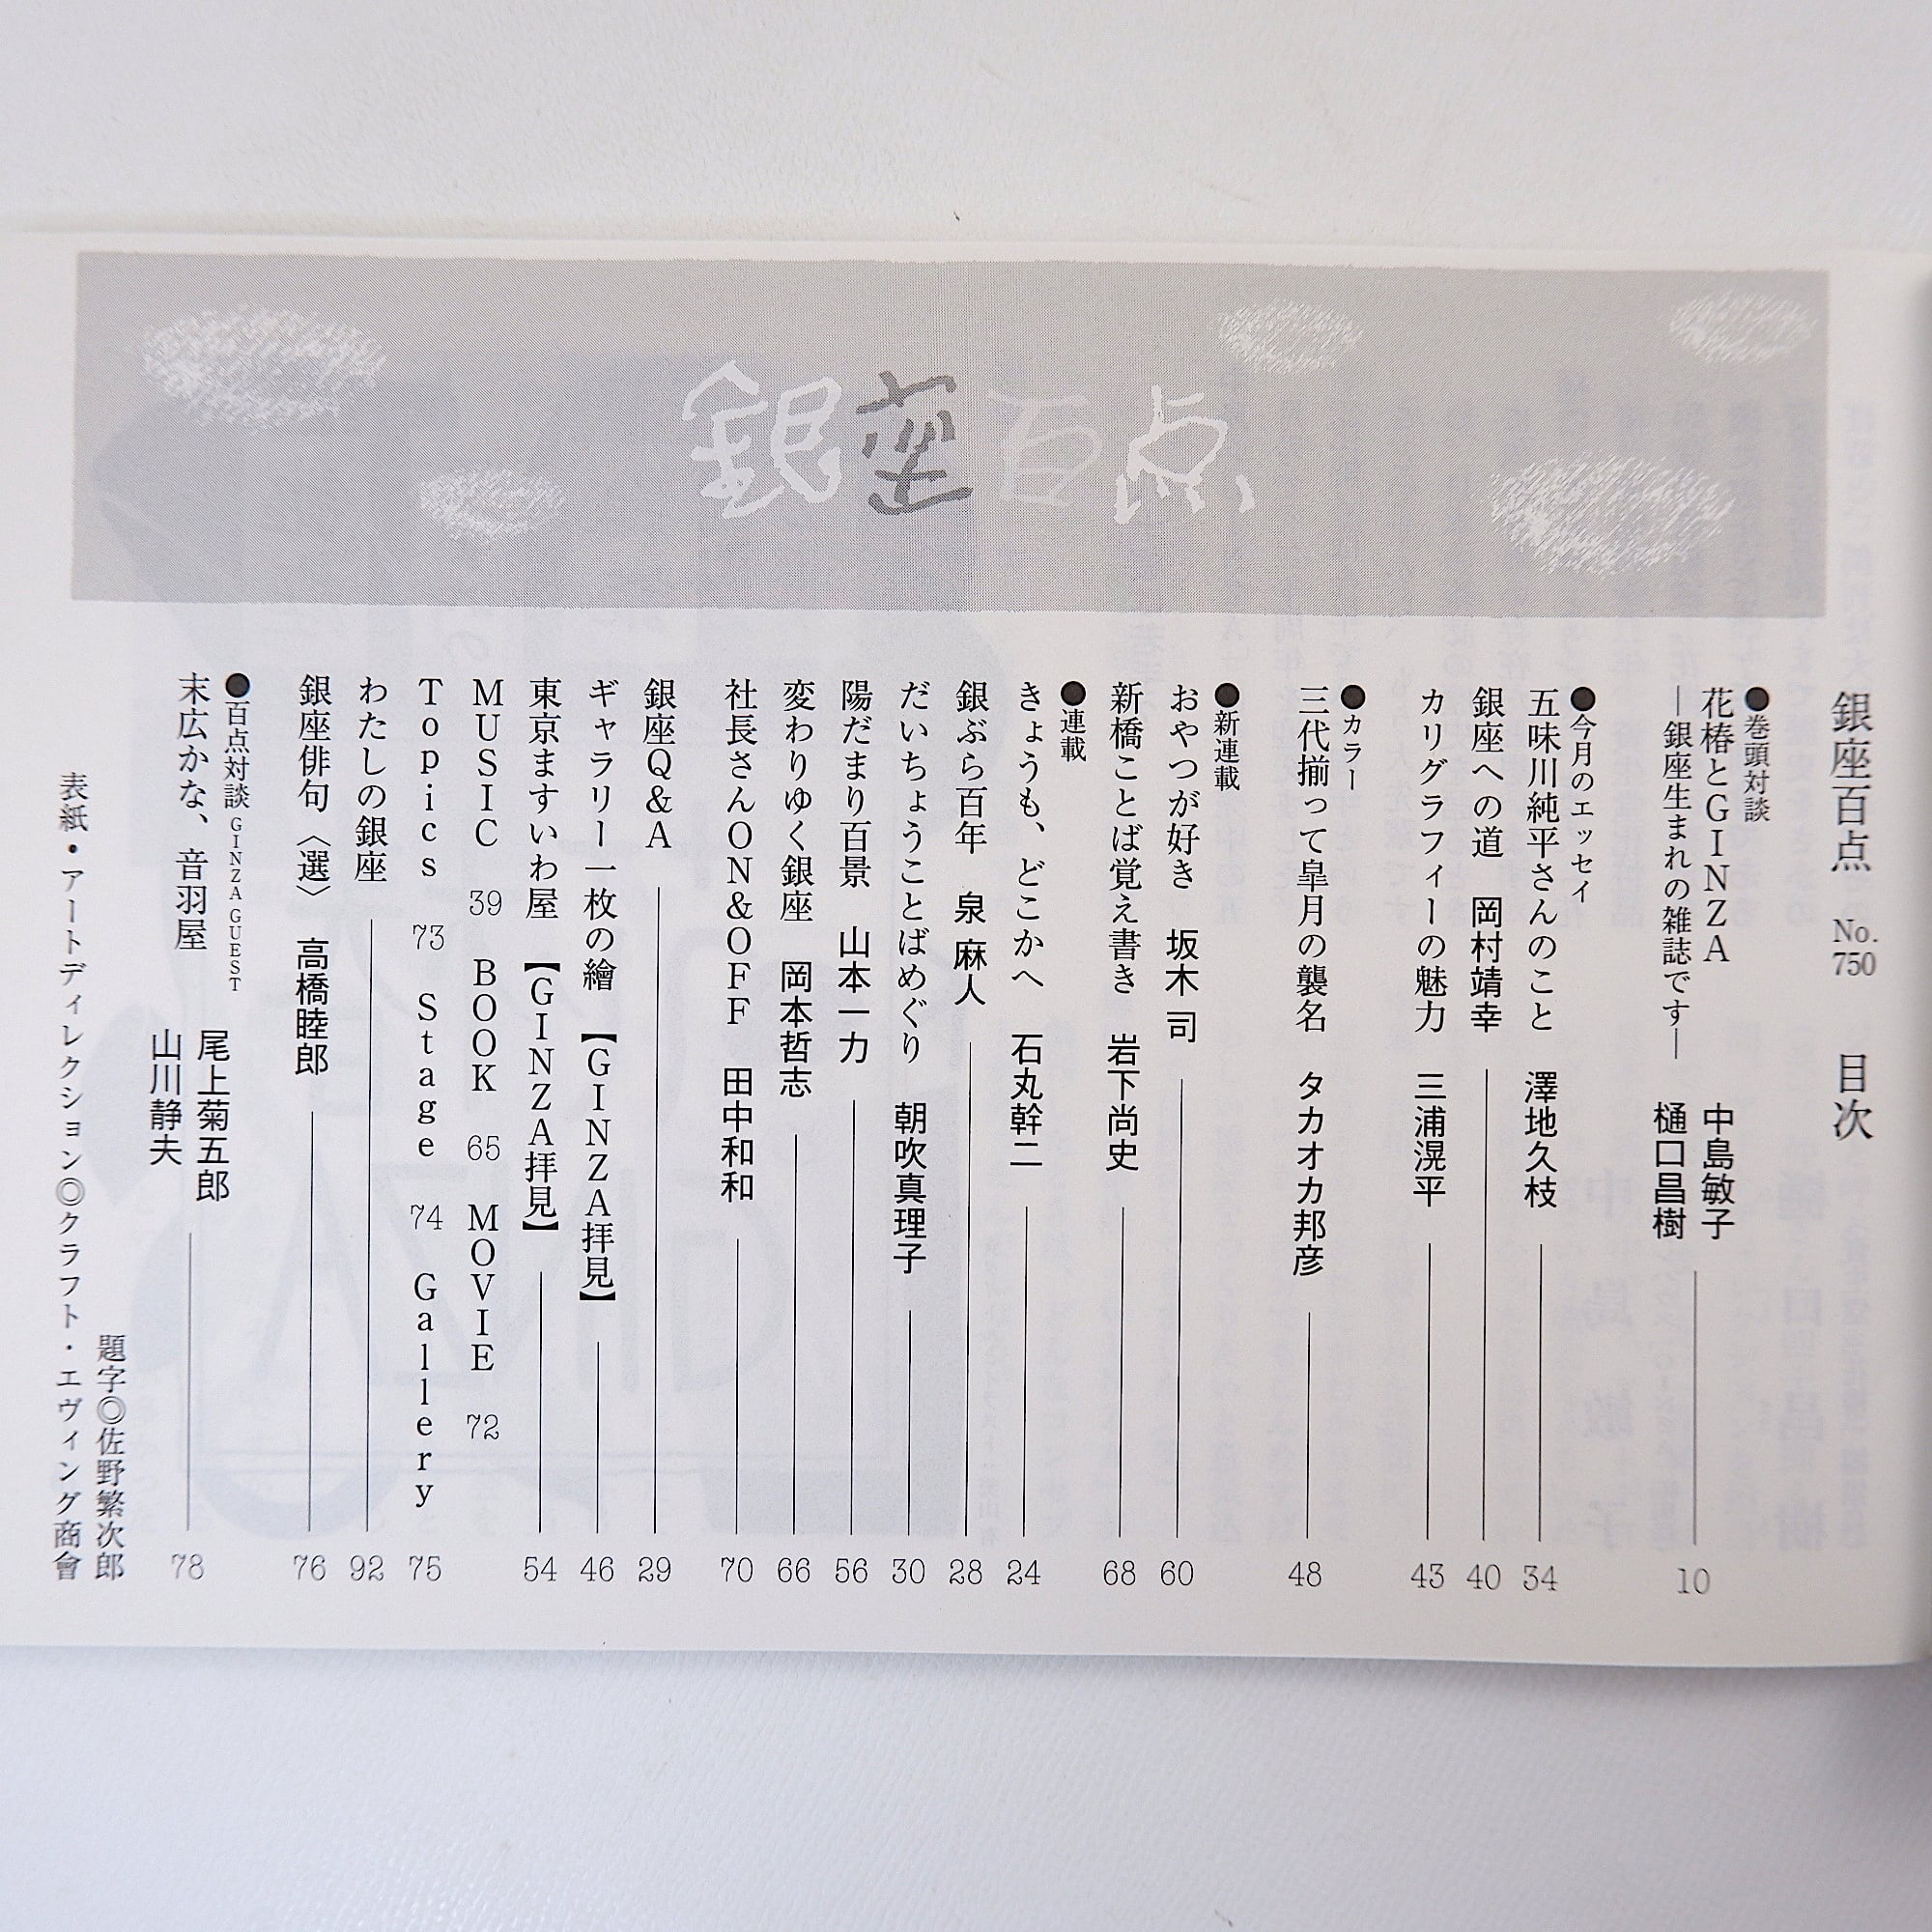 銀座百点
銀座百点 No.750 目次
●巻頭対談
花椿とGINZA
―銀座生まれの雑誌です―
中島敏子
樋口昌樹
10
●今月のエッセイ
五味川純平さんのこと 澤地久枝 34
銀座への道 岡村靖幸 40
カリグラフィーの魅力 三浦滉平 43
●カラー
三代揃って皐月の襲名 タカオカ邦彦 48
●新連載
おやつが好き 坂木司 60
新橋ことば覚え書き 岩下尚史 68
●連載
きょうも、どこかへ 石丸幹二 24
銀ぶら百年 泉麻人 28
だいちょうことばめぐり 朝吹真理子 30
陽だまり百景 山本一力 56
変わりゆく銀座 岡本哲志 66
社長さんON&OFF 田中和和 70
銀座Q&A 29
ギャラリー一枚の繪【GINZA拝見】 46
東京ますいわ屋【GINZA拝見】 54
MUSIC 39 BOOK 65 MOVIE 72
Topics 73 Stage 74 Gallery 75
わたしの銀座 92
銀座俳句〈選〉 高橋睦郎 76
●百点対談 GINZA GUEST
末広かな、音羽屋
尾上菊五郎
山川静夫
78
題字◎佐野繁次郎
表紙・アートディレクション◎クラフト・エヴィング商會